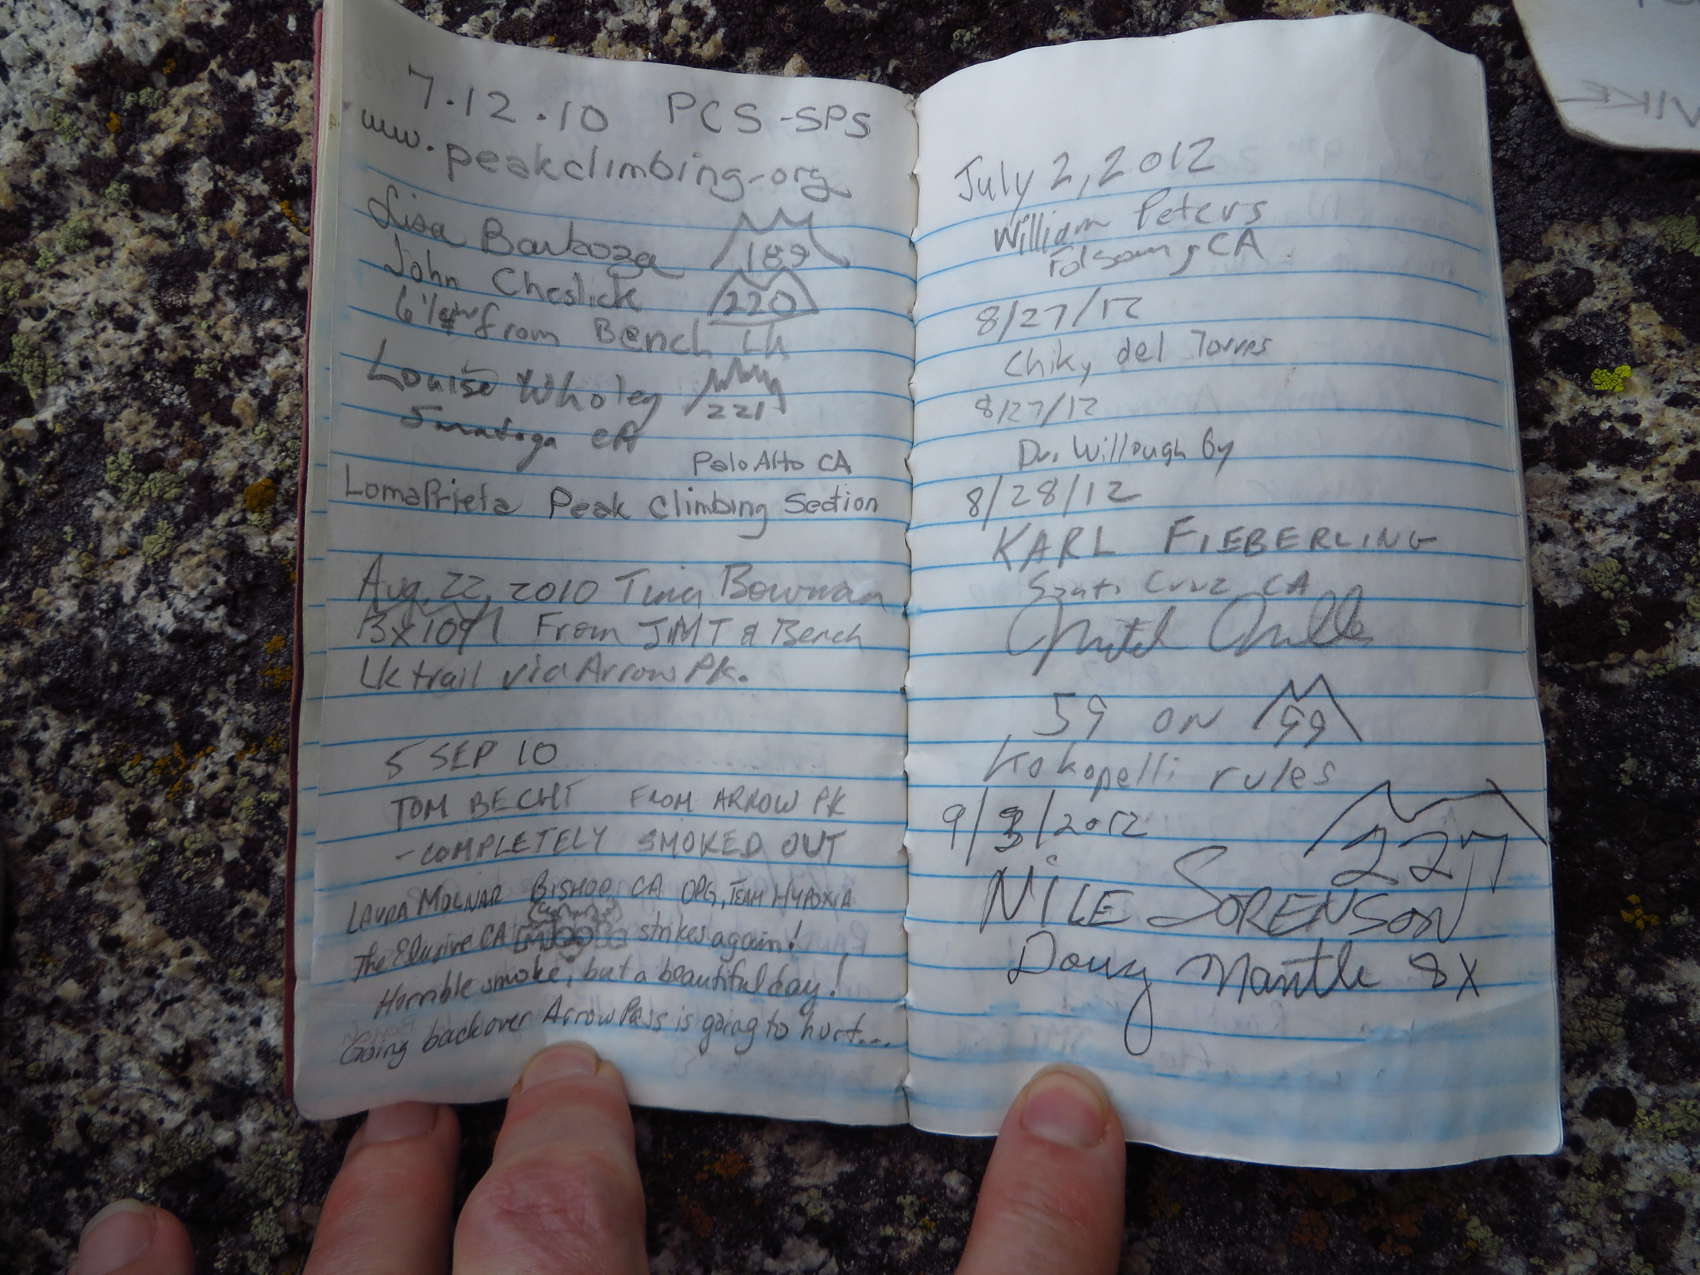 7.12.10 PCS-SPS
www.peakclimbing.org
Lisa Barboza 189
John Cheslick 220
from Bench Lk
Louise Wholey 221
Saratoga CA
Palo Alto CA
LomaPrieta Peak Climbing Section
Aug. 22, 2010 Tina Bowman
From JMT & Bench
Lk trail via Arrow Pk.
5 SEP 10
TOM BECHT FROM ARROW PK
- COMPLETELY SMOKED OUT
LAURA MOLNAR BISHOP CA ORG, TEAM HYPOXIA
The Elusive CA strikes again!
Horrible smoke, but a beautiful day!
Going back over Arrow Pass is going to hurt...
July 2, 2012
William Peters
Folsom, CA
8/27/12
Chiky del Torres
8/27/12
Dr. Willough by
8/28/12
KARL FIEBERLING
Santa Cruz CA
59 ON 99
Kokopelli rules
9/3/2012
227
NILE SORENSON
Doug Mantle 8X